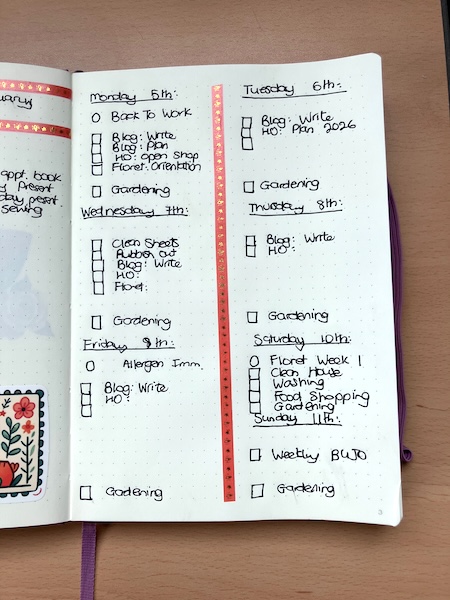 appt. book
Present
sewing
Monday 5th:
Back To Work
Blog: Write
Blog: Plan
HO: Open Shop
Floret: Orientation
Gardening
Wednesday 7th:
Clean Sheets
Rubbish out
Blog: Write
HO:
Floret:
Gardening
Friday 9th:
Allergen Imm.
Blog: Write
HO:
Gardening
Tuesday 6th:
Blog: Write
HO: Plan 2026
Gardening
Thursday 8th:
Blog: Write
HO:
Gardening
Saturday 10th:
Floret Week 1
Clean House
Washing
Food Shopping
Gardening
Sunday 11th:
Weekly BUJO
Gardening
3